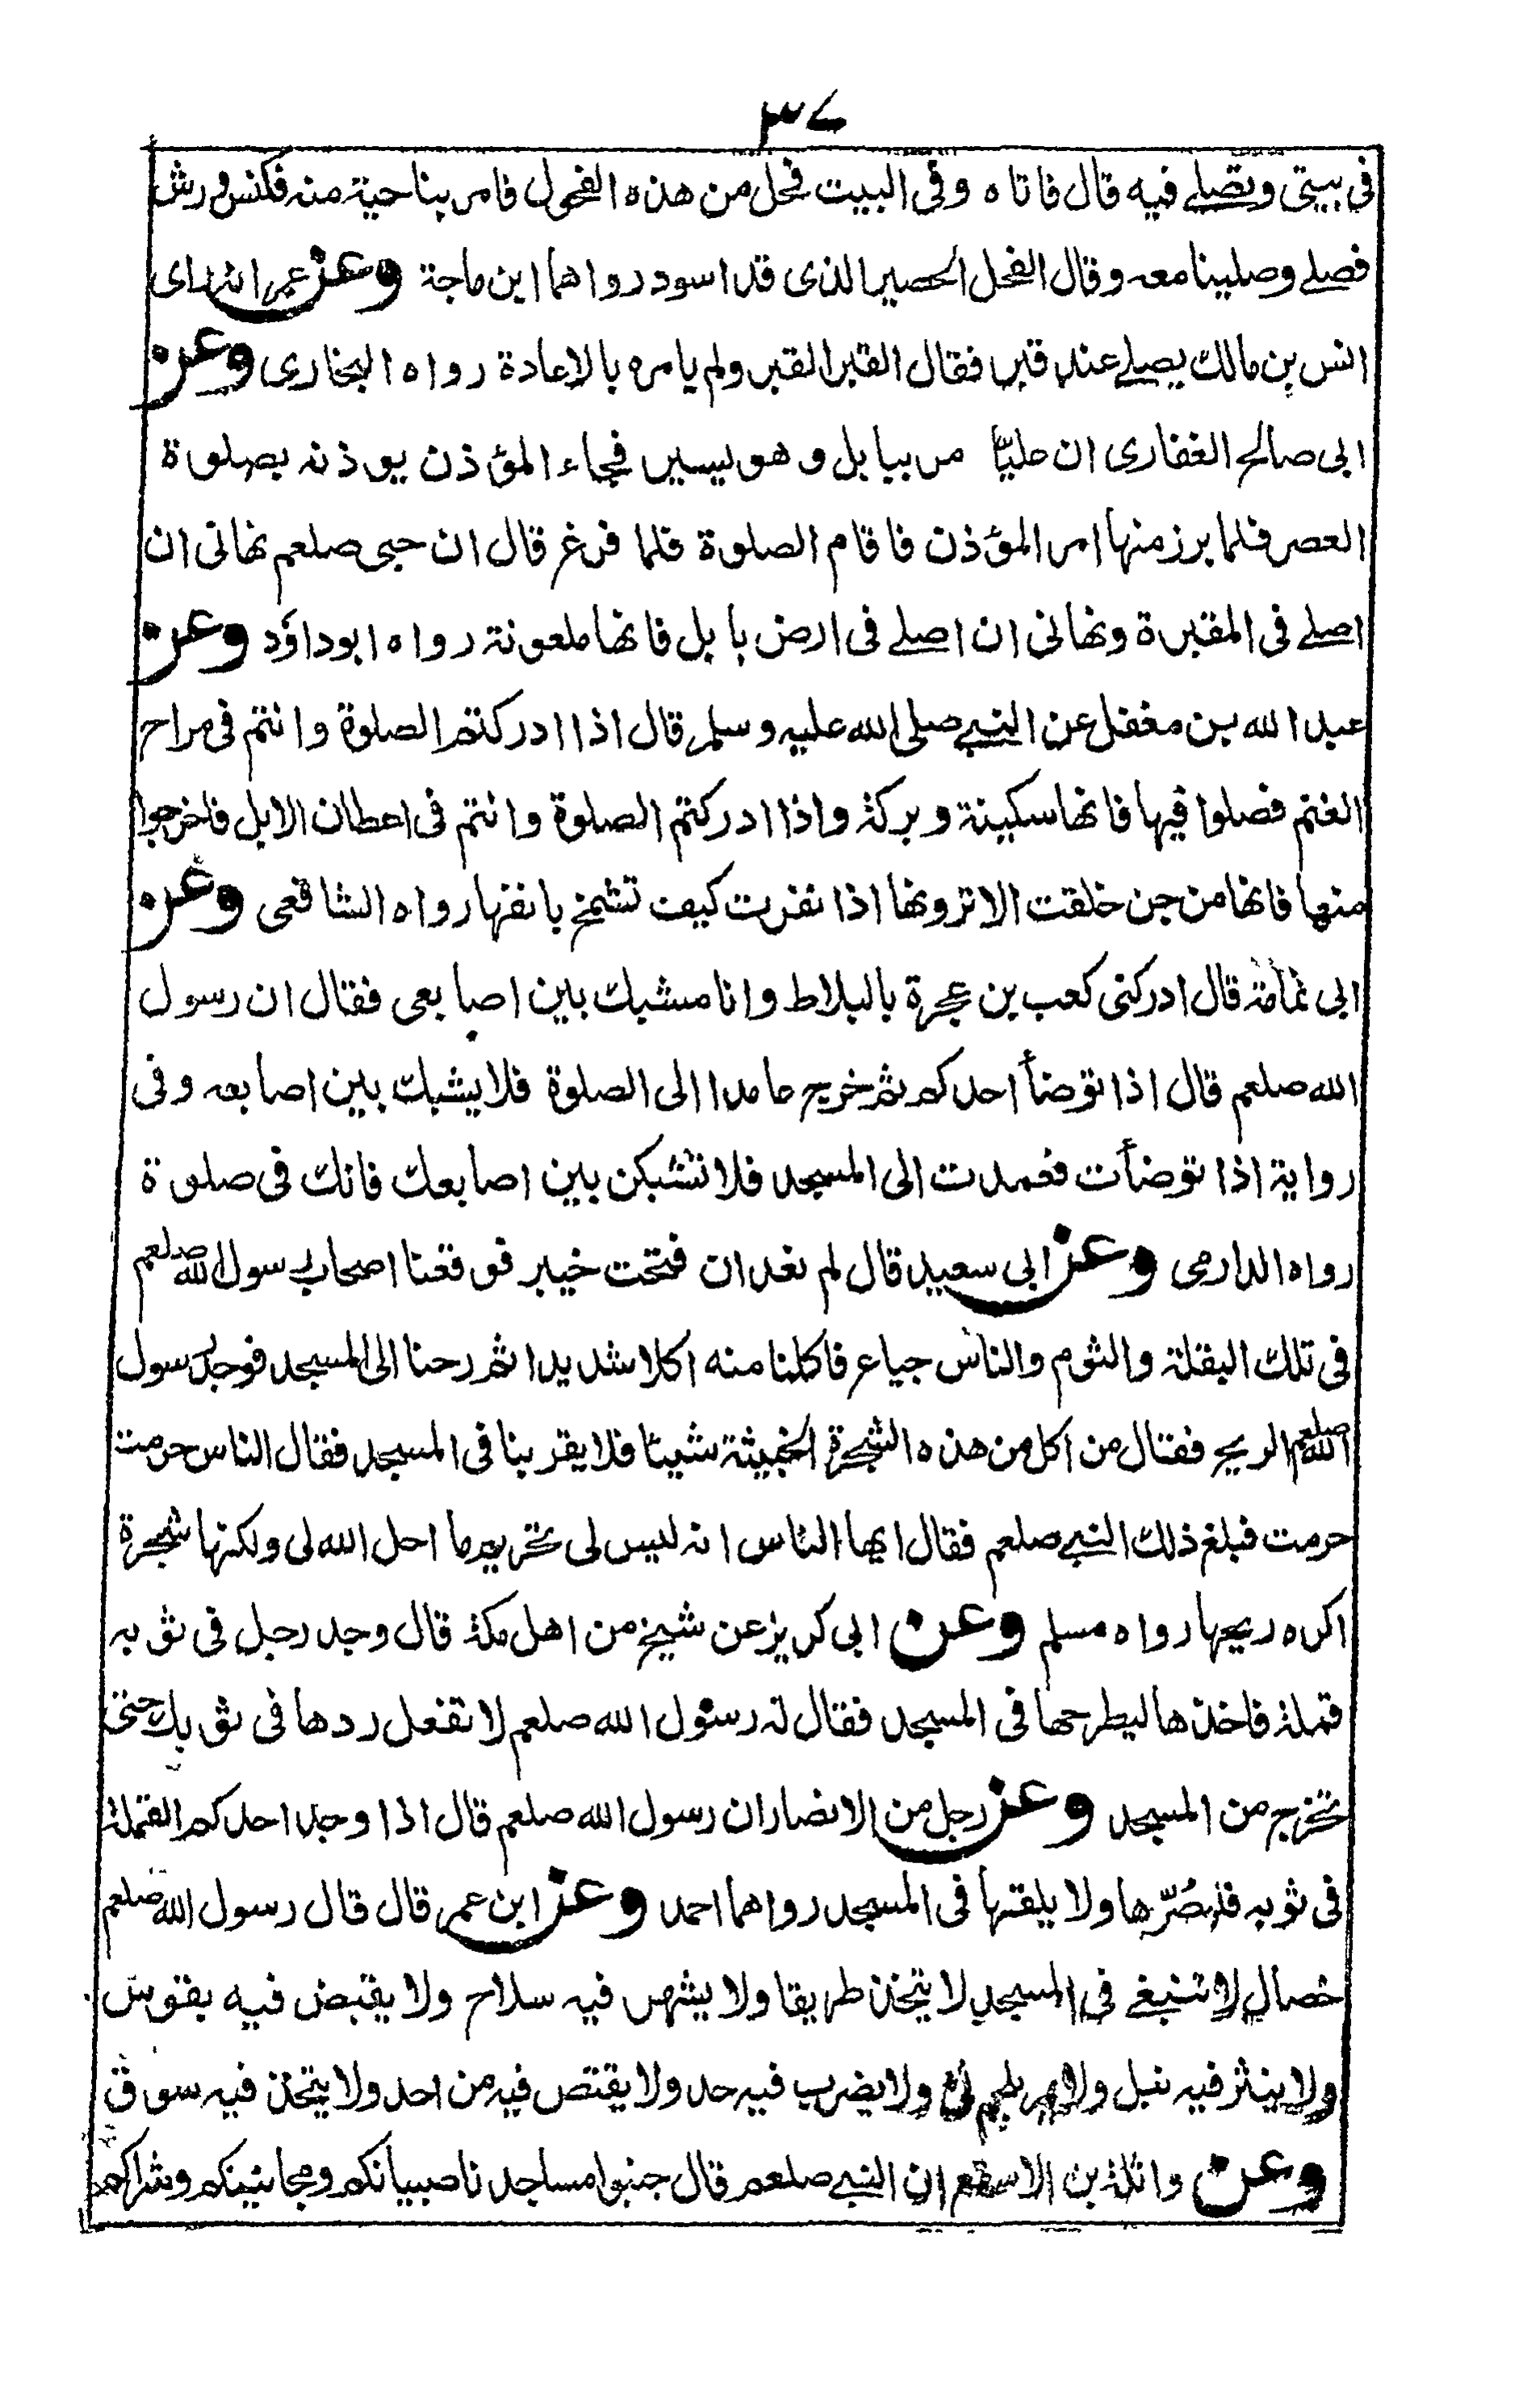 ٣٧
في بيتي وتصلے فيه قال فاتاه وفي البيت فحل من هذه الفحول فامر بناحية منه فكنس ورش
فصلے وصلينا معه وقال الفحل الحصير الذى قد اسود رواهما ابن ماجة وعن عمر انه راى
انس بن مالك يصلے عند قبر فقال القبر القبر ولم يامره بالاعادة رواه البخارى وعن
ابى صالح الغفارى ان عليّا مر ببابل وهو يسير فجاء المؤذن يوذنه بصلوة
العصر فلما برز منها امر المؤذن فاقام الصلوة فلما فرغ قال ان حبى صلعم نهانى ان
اصلے فى المقبرة ونهانى ان اصلے فى ارض بابل فانها ملعونة رواه ابوداؤد وعن
عبد الله بن مغفل عن النبے صلى الله عليه وسلم قال اذا ادركتم الصلوة وانتم فى مراح
الغنم فصلوا فيها فانها سكينة وبركة واذا ادركتم الصلوة وانتم فى اعطان الابل فاخرجوا
منها فانها من جن خلقت الا ترونها اذا نفرت كيف تشمخ بانفها رواه الشافعى وعن
ابى ثمامة قال ادركنى كعب بن عجرة بالبلاط وانا مشبك بين اصابعى فقال ان رسول
الله صلعم قال اذا توضأ احدكم ثم خرج عامدا الى الصلوة فلا يشبك بين اصابعه وفى
رواية اذا توضأت فعمدت الى المسجد فلا تشبكن بين اصابعك فانك فى صلوة
رواه الدارمى وعن ابى سعيد قال لم نعد ان فتحت خيبر فوقعنا اصحاب رسول الله صلعم
فى تلك البقلة والثوم والناس جياع فاكلنا منه اكلا شديدا ثم رحنا الى المسجد فوجد رسول
الله صلعم الريح فقال من اكل من هذه الشجرة الخبيثة شيئا فلا يقربنا فى المسجد فقال الناس حرمت
حرمت فبلغ ذلك النبے صلعم فقال ايها الناس انه ليس لى تحريم ما احل الله لى ولكنها شجرة
اكره ريحها رواه مسلم وعن ابى كريز عن شيخ من اهل مكة قال وجد رجل فى ثوبه
قملة فاخذها ليطرحها فى المسجد فقال له رسول الله صلعم لا تفعل ردها فى ثوبك حتى
تخرج من المسجد وعن رجل من الانصار ان رسول الله صلعم قال اذا وجد احدكم القملة
فى ثوبه فليصُرّها ولا يلقها فى المسجد رواهما احمد وعن ابن عمر قال قال رسول الله صلعم
خصال لا تنبغے فى المسجد لا يتخذ طريقا ولا يشهر فيه سلاح ولا يقبض فيه بقوس
ولا ينثر فيه نبل ولا يمر بلحم نئ ولا يضرب فيه حد ولا يقتص فيه من احد ولا يتخذ فيه سوق
وعن واثلة بن الاسقع ان النبے صلعم قال جنبوا مساجدنا صبيانكم ومجانينكم وشراكم